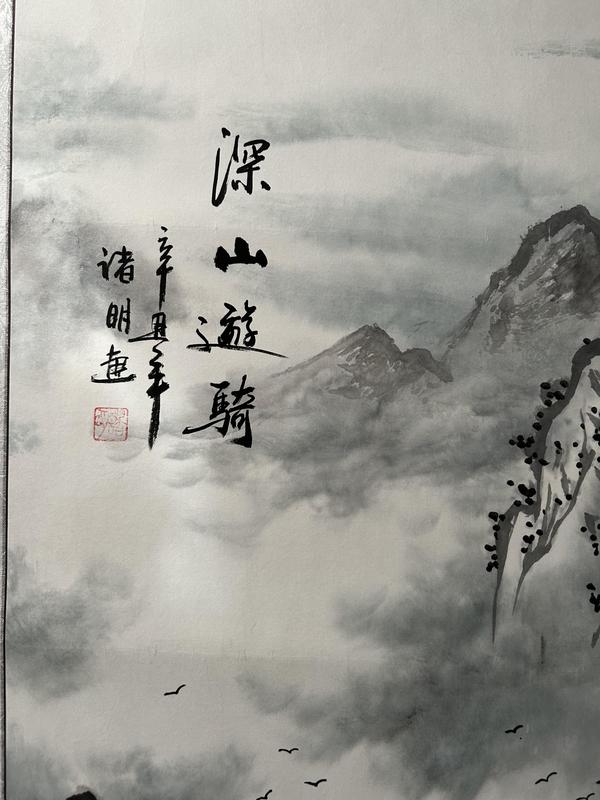 深山遊騎
辛丑年
诸明畫